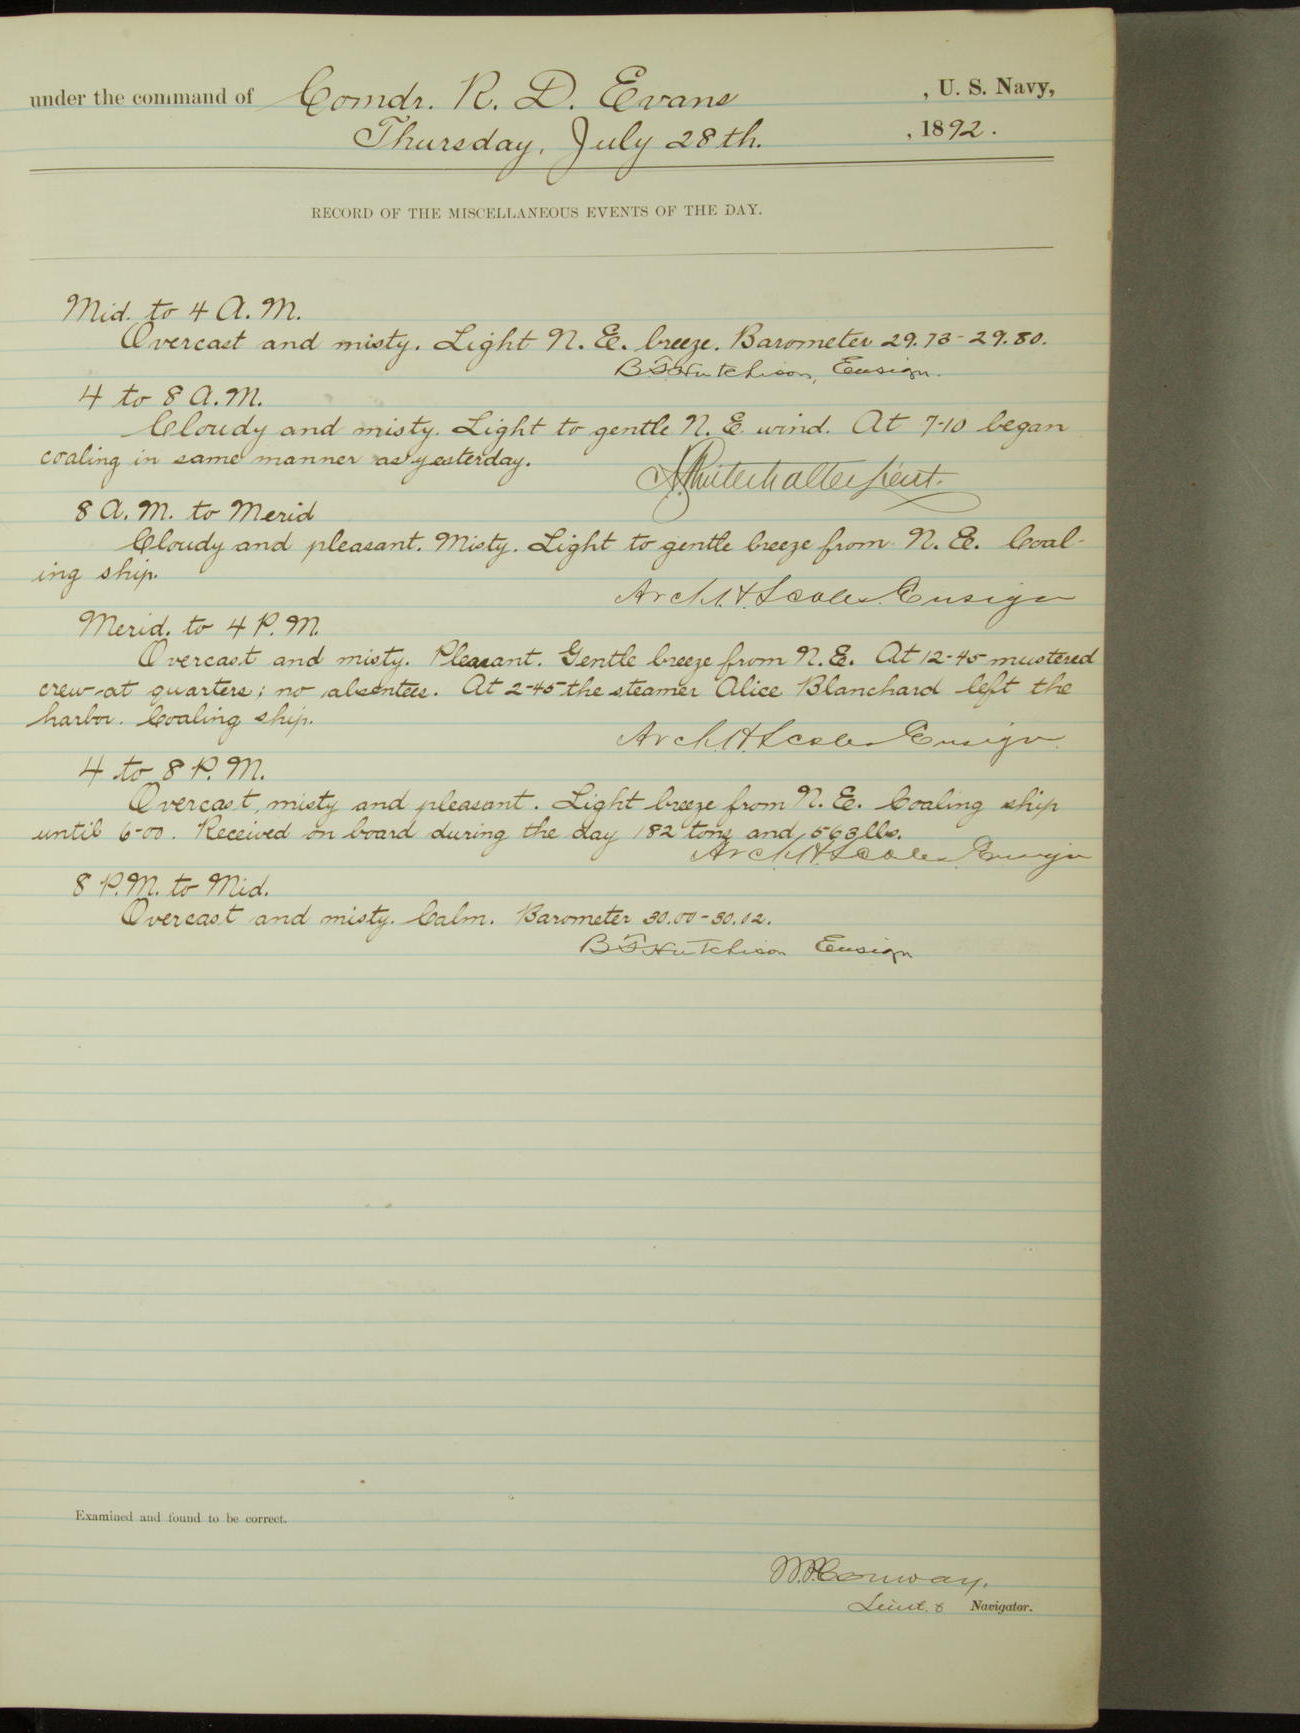 under the command of Comdr. R. D. Evans, U. S. Navy,
Thursday, July 28th. , 1892.
RECORD OF THE MISCELLANEOUS EVENTS OF THE DAY.
Mid. to 4 A. M.
Overcast and misty. Light N. E. breeze. Barometer 29.73-29.80.
B F Hutchison, Ensign.
4 to 8 A. M.
Cloudy and misty. Light to gentle N. E. wind. At 7-10 began
coaling in same manner as yesterday.
Winterhalter Lieut.
8 A. M. to Merid
Cloudy and pleasant. Misty. Light to gentle breeze from N. E. Coal-
ing ship.
Arch. H. Scales. Ensign
Merid. to 4 P. M.
Overcast and misty. Pleasant. Gentle breeze from N. E. At 12-45 mustered
crew at quarters; no absentees. At 2-45 the steamer Alice Blanchard left the
harbor. Coaling ship.
Arch. H. Scales Ensign.
4 to 8 P. M.
Overcast, misty and pleasant. Light breeze from N. E. Coaling ship
until 6-00. Received on board during the day 182 tons and 563 lbs.
Arch. H. Scales Ensign
8 P. M. to Mid.
Overcast and misty. Calm. Barometer 30.00-30.02.
B F Hutchison Ensign
Examined and found to be correct.
W. P. Conway,
Lieut. & Navigator.